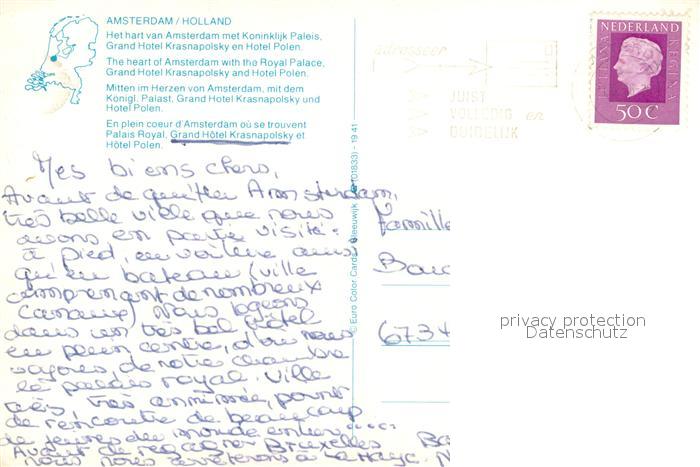 AMSTERDAM / HOLLAND
Het hart van Amsterdam met Koninklijk Paleis,
Grand Hotel Krasnapolsky en Hotel Polen.
The heart of Amsterdam with the Royal Palace,
Grand Hotel Krasnapolsky and Hotel Polen.
Mitten im Herzen von Amsterdam, mit dem
Königl. Palast, Grand Hotel Krasnapolsky und
Hotel Polen.
En plein coeur d'Amsterdam où se trouvent
Palais Royal, Grand Hôtel Krasnapolsky et
Hôtel Polen.
Mes biens chers,
Avant de quitter Amsterdam,
très belle ville que nous
avons en partie visité:
à pied, en voiture ainsi
qu'en bateau (ville
comprenant de nombreux
Canaux) Nous logeons
dans un très bel hôtel
en plein centre, d'où nous
voyons de notre chambre
le palais royal. Ville
très très animée, point
de rencontre de beaucoup
de jeunes du monde entier....
Avant de regagner Bruxelles
nous nous arrêterons à La Haye.
© Euro Color Cards Sleeuwijk (2101833) - 19 41
adresseer
JUIST
VOLLEDIG en
DUIDELIJK
NEDERLAND
JULIANA REGINA
50 C
Famille
6734
privacy protection
Datenschutz